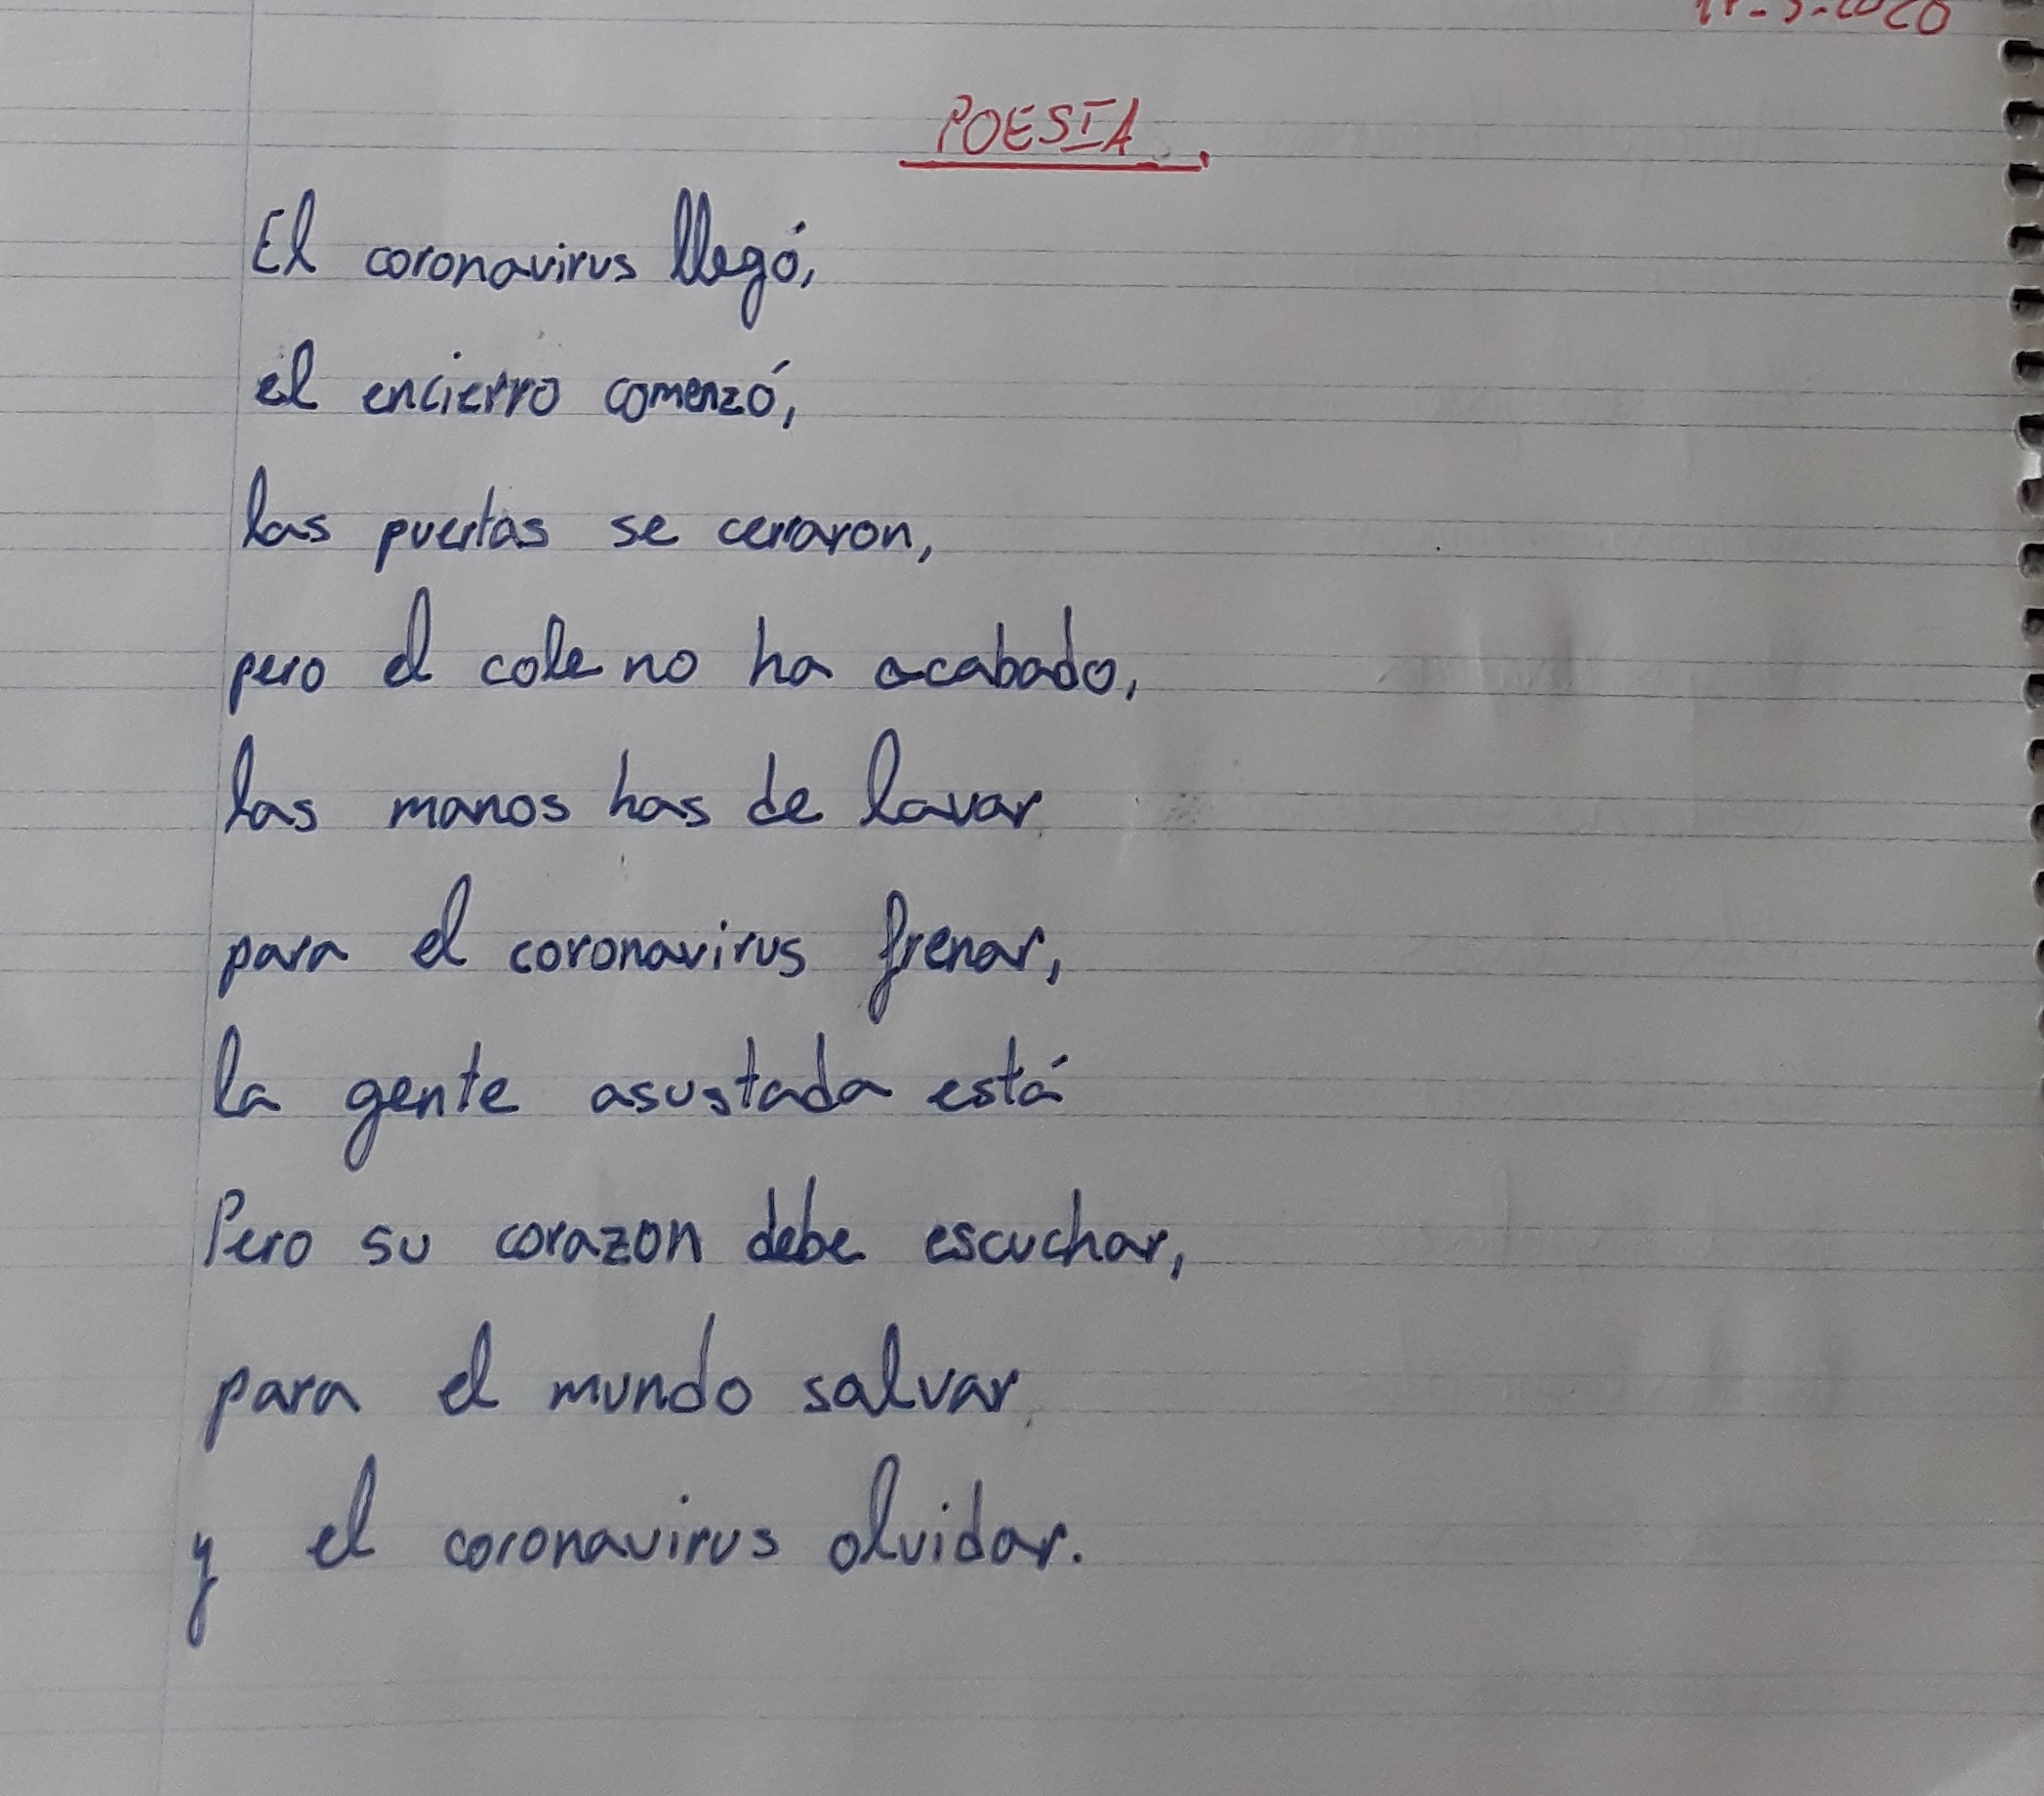 POESIA
El coronavirus llegó,
el encierro comenzó,
las puertas se cerraron,
pero el cole no ha acabado,
las manos has de lavar
para el coronavirus frenar,
la gente asustada está
Pero su corazon debe escuchar,
para el mundo salvar
y el coronavirus olvidar.